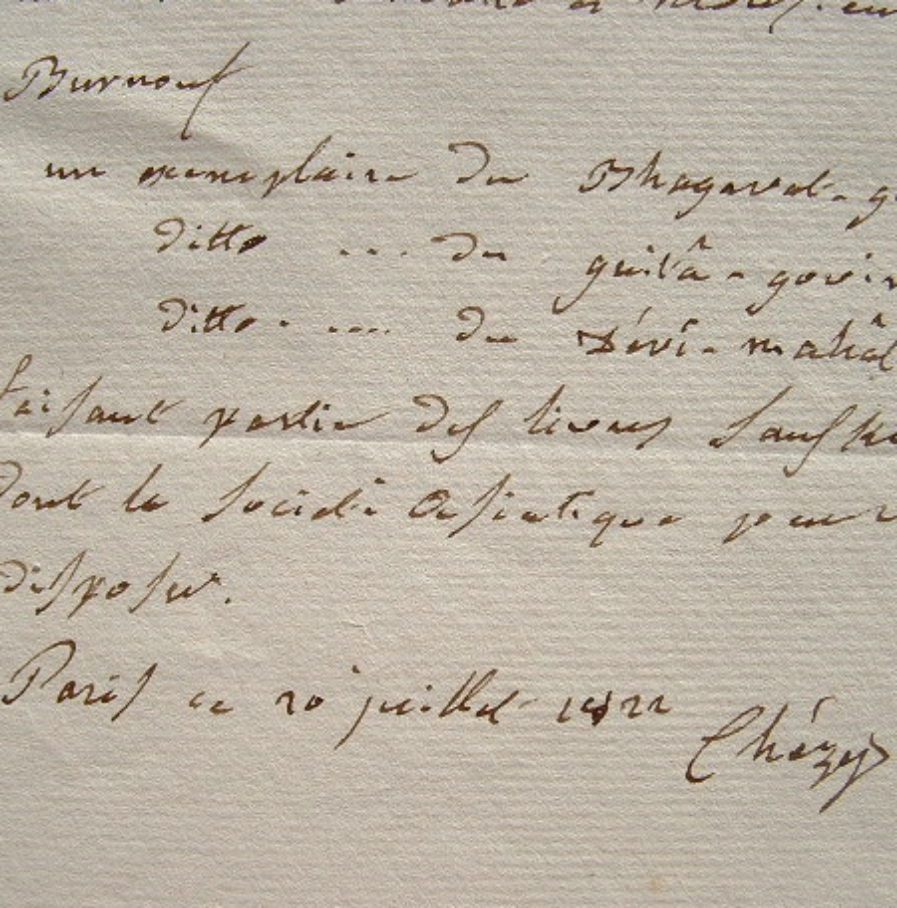 Burnouf
un exemplaire du Bhagavat-g
ditto ... du guîtâ-govin
ditto. .... du Dévî-mahât
faisant partie des livres Sansk
dont la Société Asiatique peut
disposer.
Paris ce 20 juillet 1822
Chézy